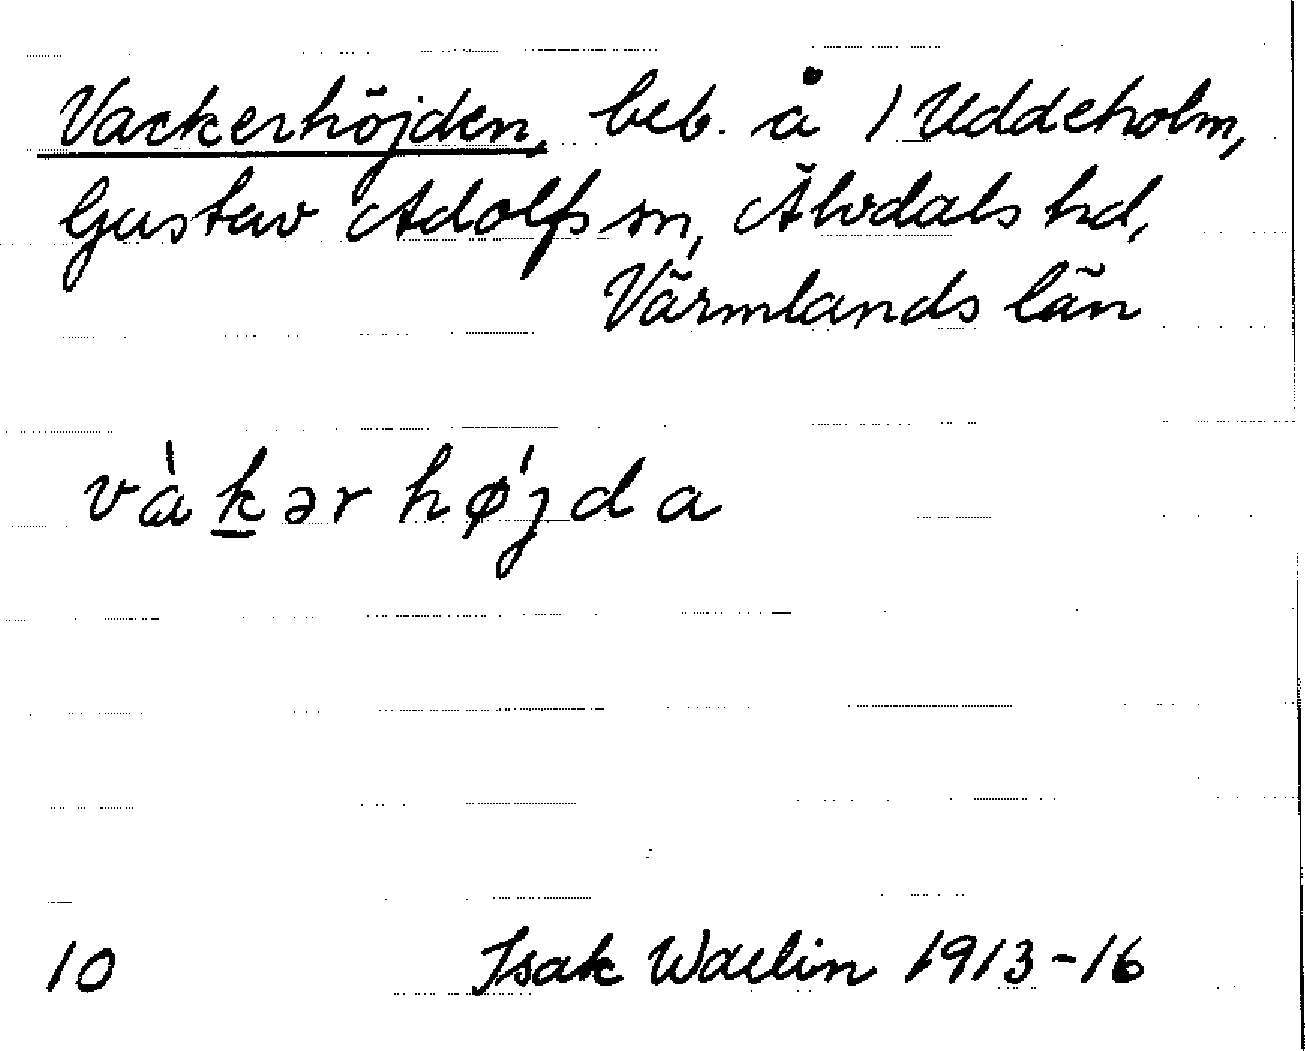 Vackerhöjden, beb. å 1 Uddeholm,
Gustav Adolfs sn, Älvdals hd,
Värmlands län
và̀kərhǿjda
10 Isak Waelin 1913-16